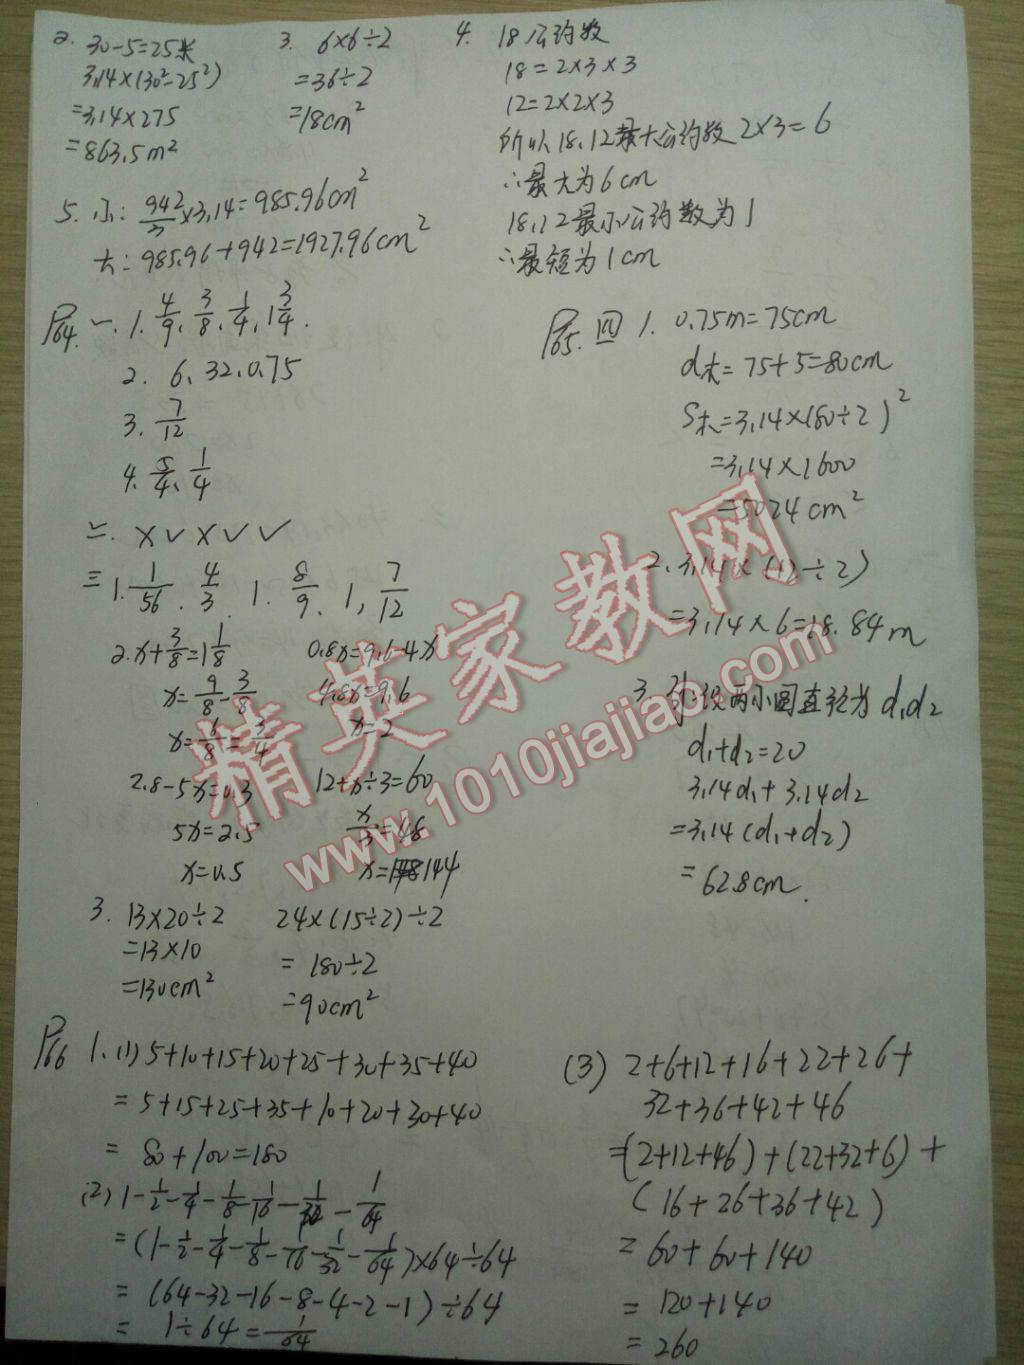 2. 30-5=25米
3.14×(30²-25²)
=3.14×275
=863.5m²
3. 6×6÷2
=36÷2
=18cm²
4. 18公约数
18=2×3×3
12=2×2×3
所以18、12最大公约数2×3=6
∴最大为6cm
18、12最小公约数为1
∴最短为1cm
5. 小: 942/3×3.14=985.96cm²
大: 985.96+942=1927.96cm²
P64. 一. 1. 4/9、3/8、1/4、1 3/4.
2. 6、32、0.75
3. 7/12
4. 5/4、1/4
二. × ✓ × ✓ ✓
三 1. 1/56、4/3、1. 8/9、1, 7/12
2. x+3/8=1 1/8
x=9/8-3/8
x=6/8=3/4
0.8x=9.6-4x
4.8x=9.6
x=2
2.8-5x=0.3
5x=2.5
x=0.5
12+x÷3=60
x/3=48
x=144
3. 13×20÷2
=13×10
=130cm²
24×(15÷2)÷2
=180÷2
=90cm²
P65. 四 1. 0.75m=75cm
d木=75+5=80cm
S木=3.14×(80÷2)²
=3.14×1600
=5024cm²
2. 3.14×(12÷2)
=3.14×6=18.84m
3. 外:设两小圆直径为d₁d₂
d₁+d₂=20
3.14d₁+3.14d₂
=3.14(d₁+d₂)
=62.8cm.
P66 1. (1) 5+10+15+20+25+30+35+40
=5+15+25+35+10+20+30+40
= 80+100=180
(2) 1-1/2-1/4-1/8-1/16-1/32-1/64
=(1-1/2-1/4-1/8-1/16-1/32-1/64)×64÷64
=(64-32-16-8-4-2-1)÷64
= 1÷64=1/64
(3) 2+6+12+16+22+26+
32+36+42+46
=(2+12+46)+(22+32+6)+
(16+26+36+42)
=60+60+140
=120+140
=260
精英家教网
www.1010jiajiao.com